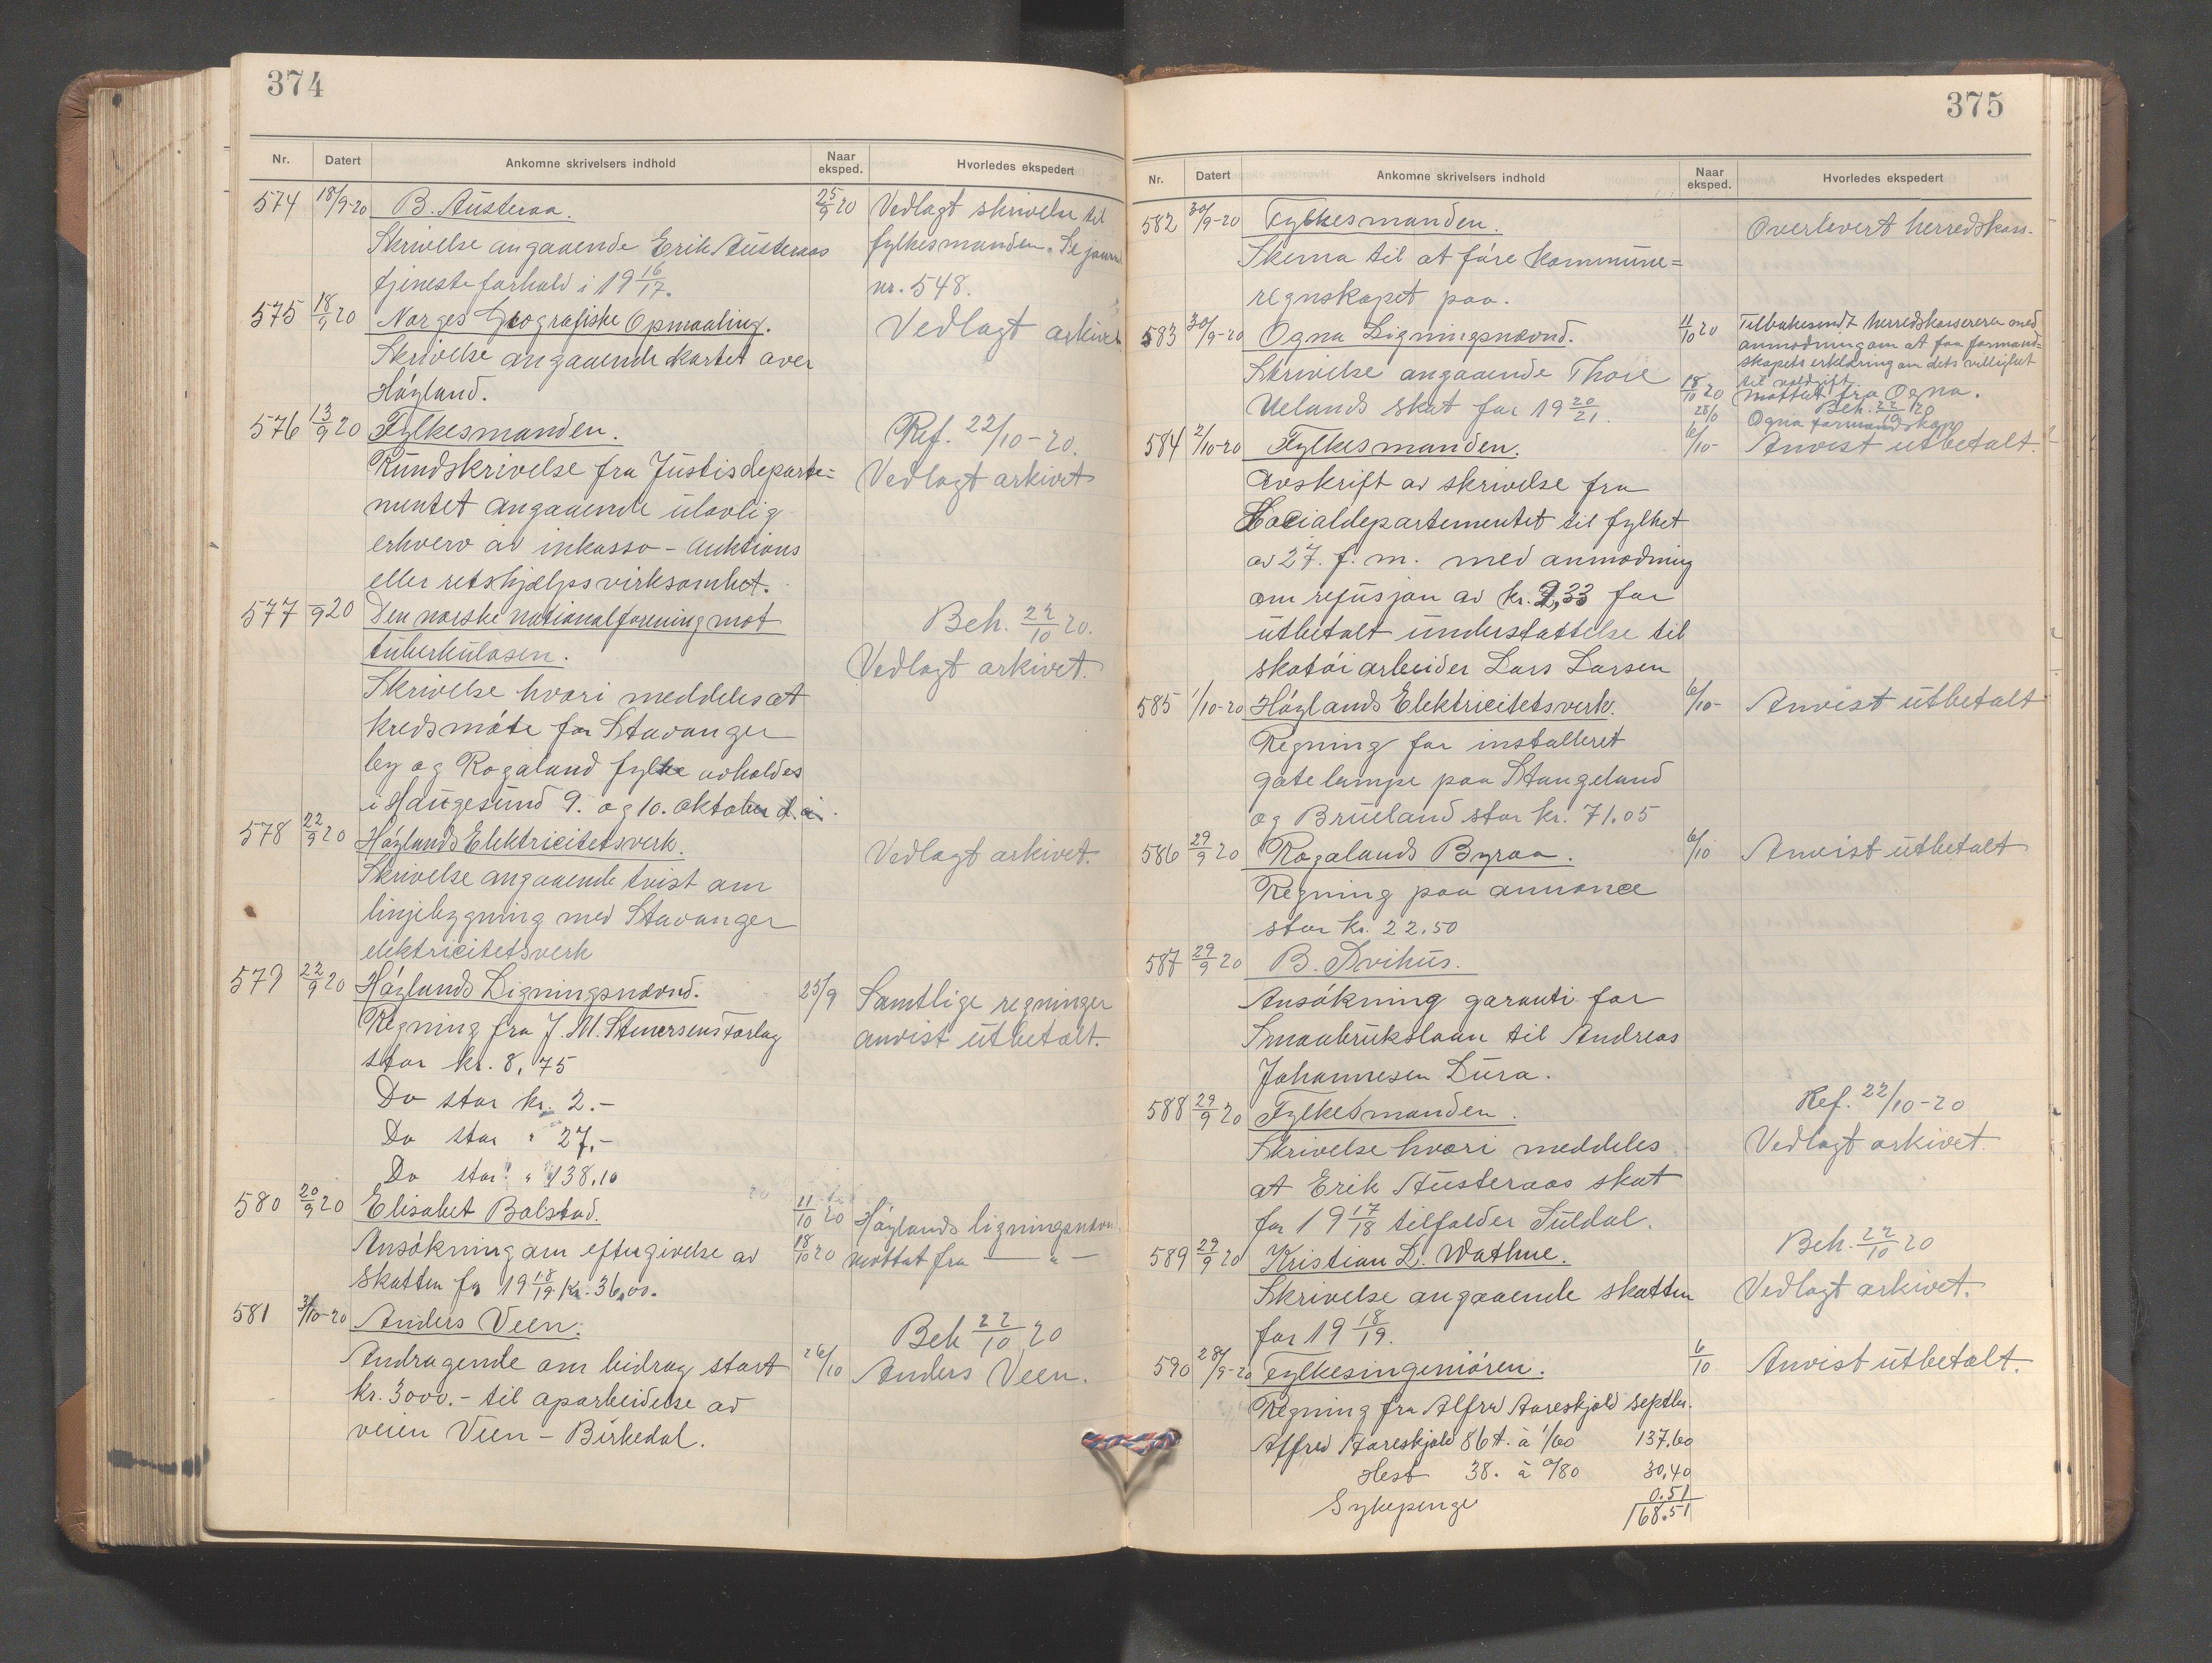 374
Nr. Datert Ankomne skrivelsers indhold Naar eksped. Hvorledes ekspedert
574 18/9-20 B. Austeraa. 25/9 20 Vedlagt skrivelse til
Skrivelse angaaende Erik Austeraas fylkesmanden. Se journal
tjenesteforhold i 19 16/17. nr. 548.
575 18/9 20 Norges Geografiske Opmaaling. Vedlagt arkivet
Skrivelse angaaende kartet over
Höyland.
576 13/9 20 Fylkesmanden. Ref. 22/10-20.
Rundskrivelse fra Justisdeparte= Vedlagt arkivet
mentet angaaende ulovlig
erhverv av inkasso - auktions
eller retshjælpsvirksomhet.
577 -/9 20 Den norske nationalforening mot Beh. 22/10 20.
tuberkulosen. Vedlagt arkivet.
Skrivelse hvori meddeles at
kredsmöte for Stavanger
by og Rogaland fylke avholdes
i Haugesund 9. og 10. oktober d.a.
578 22/9 20 Höylands Elektricitetsverk. Vedlagt arkivet.
Skrivelse angaaende tvist om
linjebygning med Stavanger
elektricitetsverk
579 22/9 20 Höylands Ligningsnævnd. 25/9 Samtlige regninger
Regning fra J. M. Stenersens Forlag anvist utbetalt.
stor kr. 8,75
Do stor kr. 2.-
Do stor " 27,-
Do stor " 138,10
580 20/9 20 Elisabet Bolstad. 11/10 20 Höylands ligningsnævn
Ansökning om eftergivelse av 18/10 20 mottat fra — " —
skatten for 19 18/19. Kr. 36,00.
581 3/10-20 Anders Veen. Beh 22/10 20
Andragende om bidrag stort 26/10 Anders Veen.
kr. 3000.- til oparbeidelse av
veien Veen - Birkedal.
375
Nr. Datert Ankomne skrivelsers indhold Naar eksped. Hvorledes ekspedert
582 30/9-20 Fylkesmanden. Overlevert herredskass.
Skema til at före kommune=
regnskapet paa.
583 30/9-20 Ogna Ligningsnævnd. 11/10 20 Tilbakesendt herredskassereren med
anmodning om at faa formand=
skapets erklæring om dets villighet
Skrivelse angaaende Thore til voldgift.
Uelands skat for 19 20/21. 18/10 20 Mottat fra Ogna.
Beh. 22/10 20
28/10 Ogna formandskap
584 2/10-20 Fylkesmanden. 6/10- Anvist utbetalt.
Avskrift av skrivelse fra
Socialdepartementet til fylket
av 27. f. m. med anmodning
om refusjon av kr. 2,33 for
utbetalt understøttelse til
skotöiarbeider Lars Larsen
585 1/10-20 Höylands Elektricitetsverk. 6/10- Anvist utbetalt
Regning for installeret
gatelampe paa Stangeland
og Brueland stor kr. 71.05
586 29/9 20 Rogalands Byraa. 6/10 Anvist utbetalt
Regning paa annonce
stor kr. 22.50
587 29/9 20 B. Svihus.
Ansökning garanti for
Smaabrukslaan til Andreas
Johannesen Lura.
588 29/9 20 Fylkesmanden. Ref. 22/10-20
Skrivelse hvori meddeles Vedlagt arkivet.
at Erik Austeraas skat
for 19 17/18 tilfalder Suldal.
589 29/9 20 Kristian L. Wathne. Beh. 22/10 20
Skrivelse angaaende skatten Vedlagt arkivet.
for 19 18/19.
590 28/9-20 Fylkesingeniören. 6/10 Anvist utbetalt.
Regning fra Alfred Aareskjold septbr.
Alfred Aareskjold 86 t. à 1/60 137.60
Hest 38. à 0/80 30,40
Sykepenge 0.51
168.51